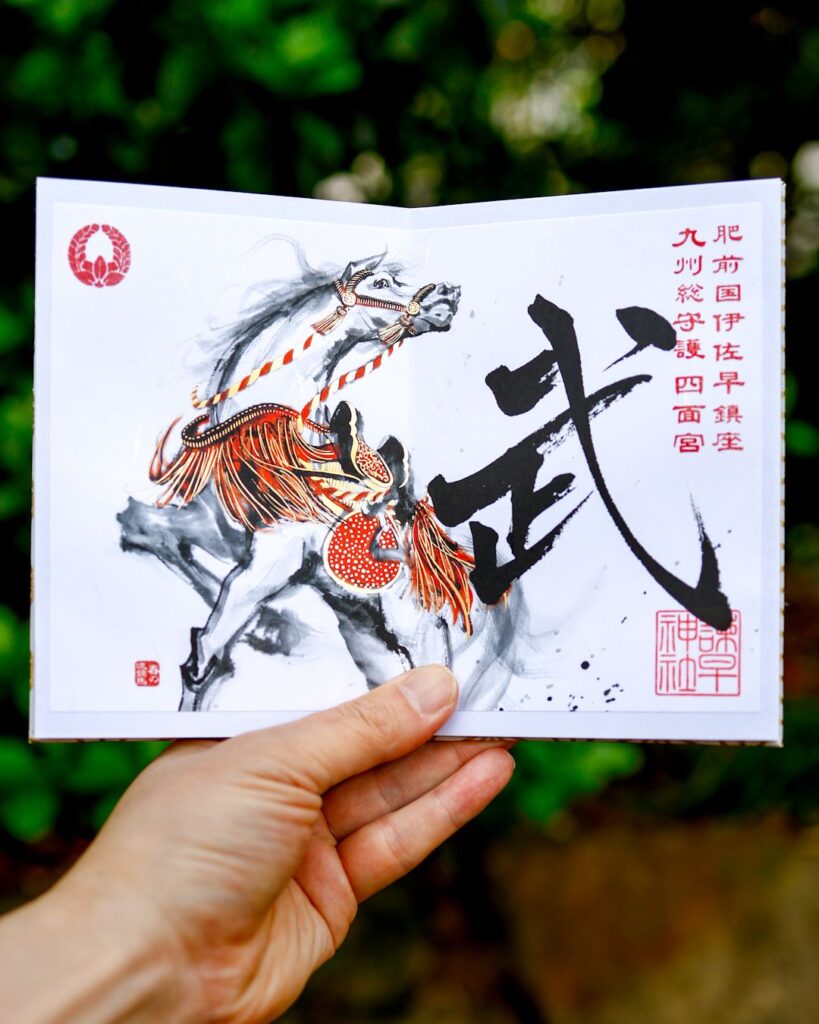 肥前国伊佐早鎮座
九州総守護四面宮
武
諫早
神社
春の
流鏑馬